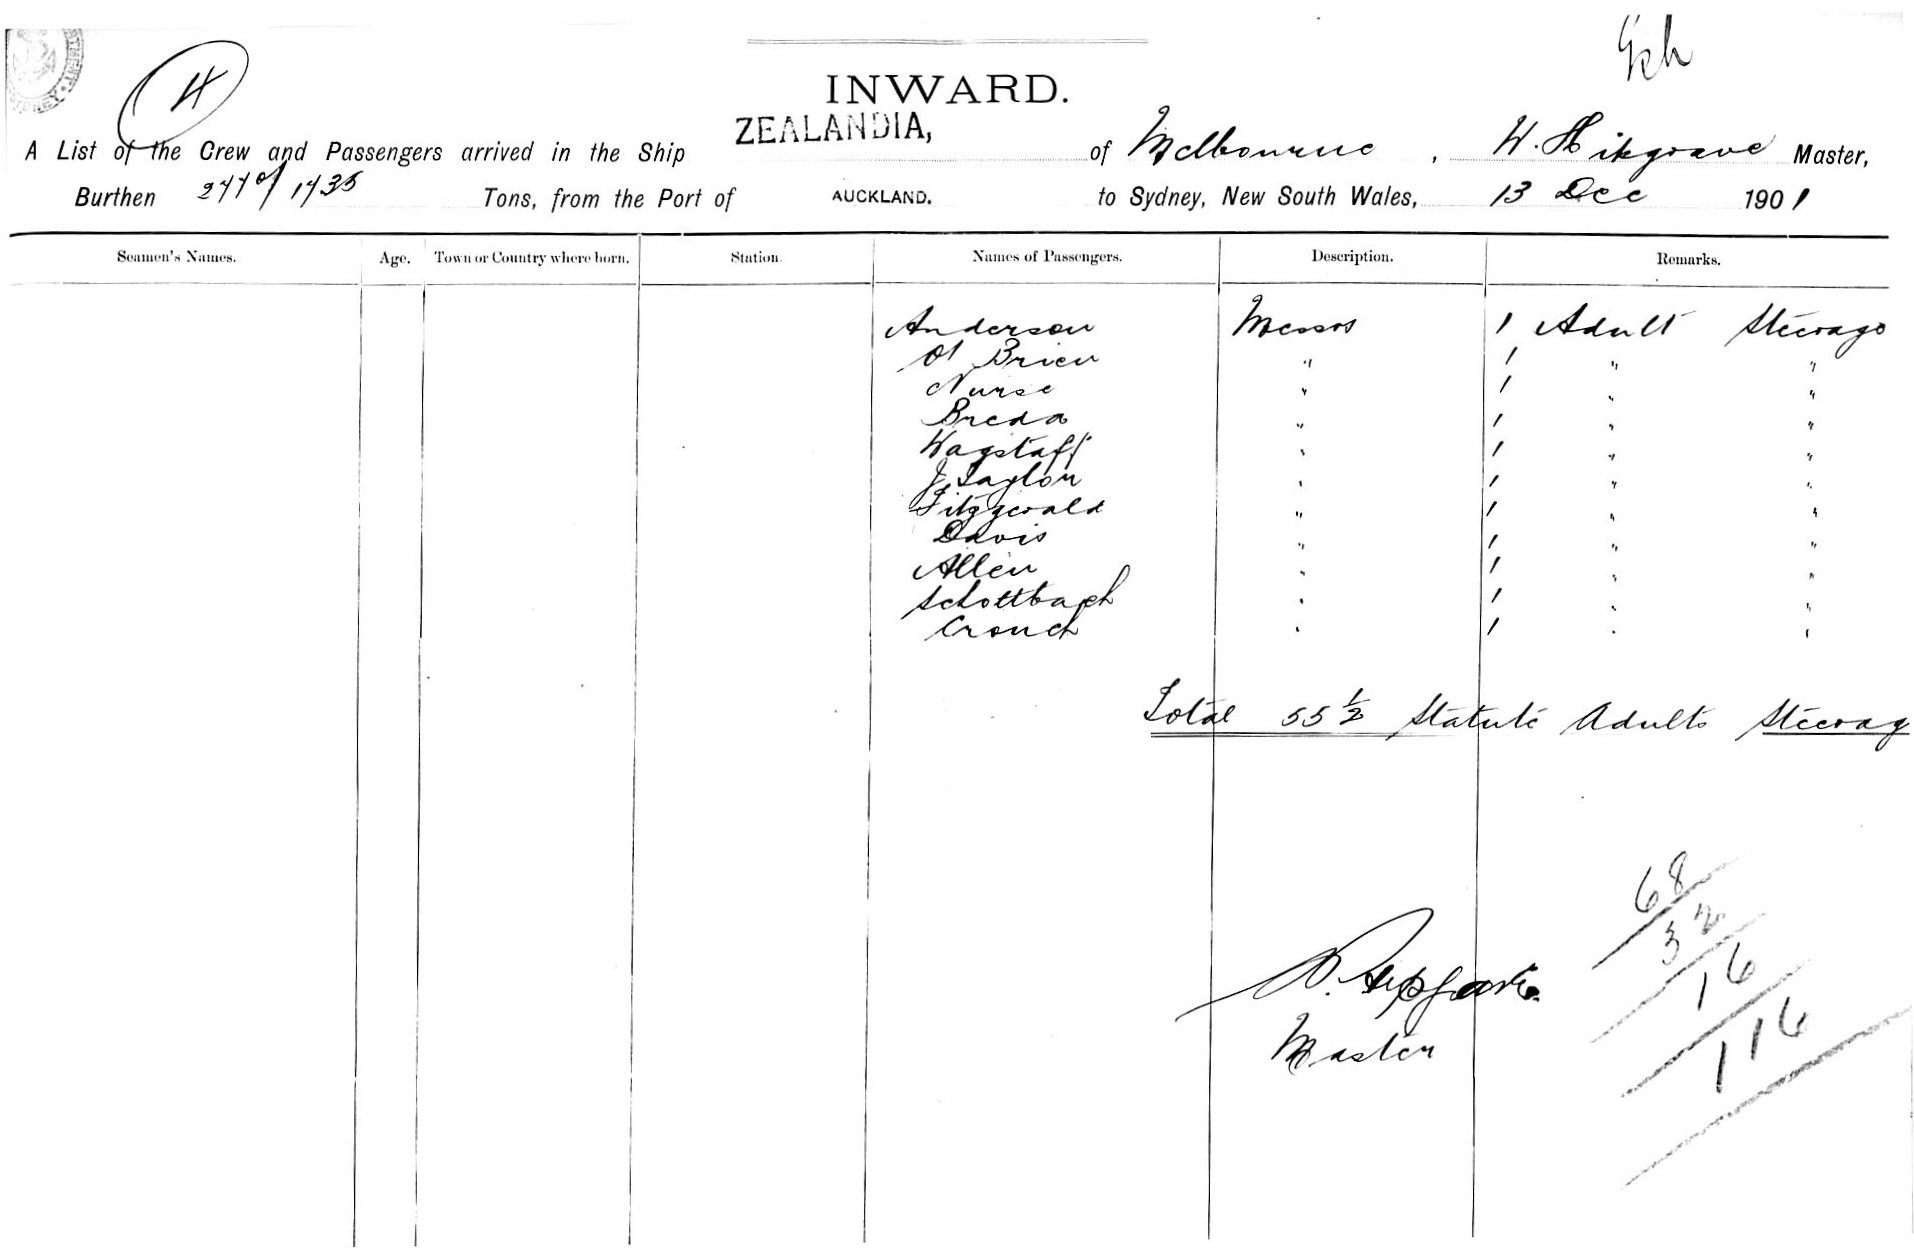 4
INWARD.
A List of the Crew and Passengers arrived in the Ship ZEALANDIA, of Melbourne, W. Hipgrave Master,
Burthen 2771/1435 Tons, from the Port of AUCKLAND. to Sydney, New South Wales, 13 Dec 1901
Seamen's Names. Age. Town or Country where born. Station. Names of Passengers. Description. Remarks.
Anderson Messrs 1 Adult Steerage
O'Brien " 1 " "
Nurse " 1 " "
Breda " 1 " "
Wagstaff " 1 " "
J. Taylor " 1 " "
Fitzgerald " 1 " "
Davis " 1 " "
Allen " 1 " "
Schottbach " 1 " "
Crouch " 1 " "
Total 55 1/2 Statute Adults Steerag
68
32
16
116
W. Hipgrave.
Master